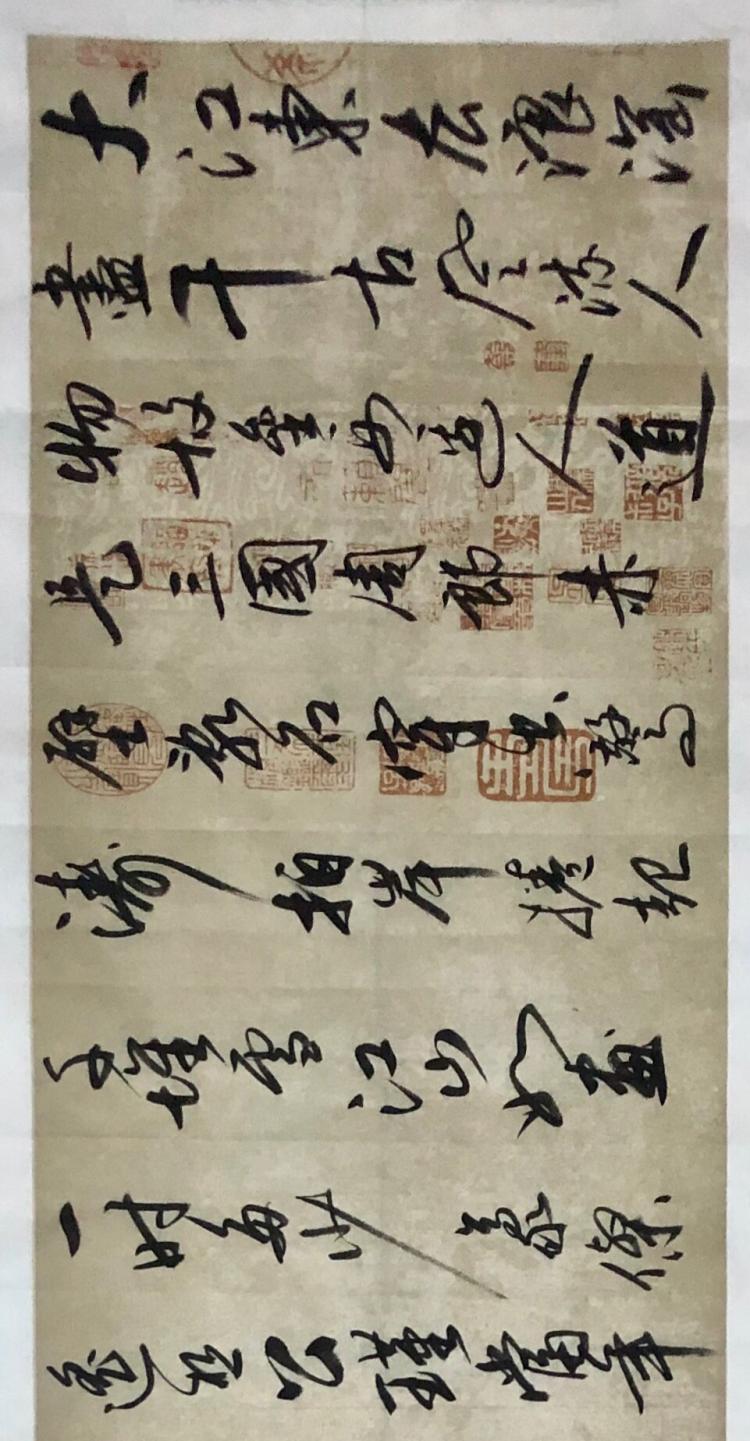 大江東去浪淘
盡千古風流人
物故壘西邊人道
是三國周郎赤
壁亂石穿空驚
濤拍岸捲起
千堆雪江山如畫
一時多少豪傑
遙想公瑾當年